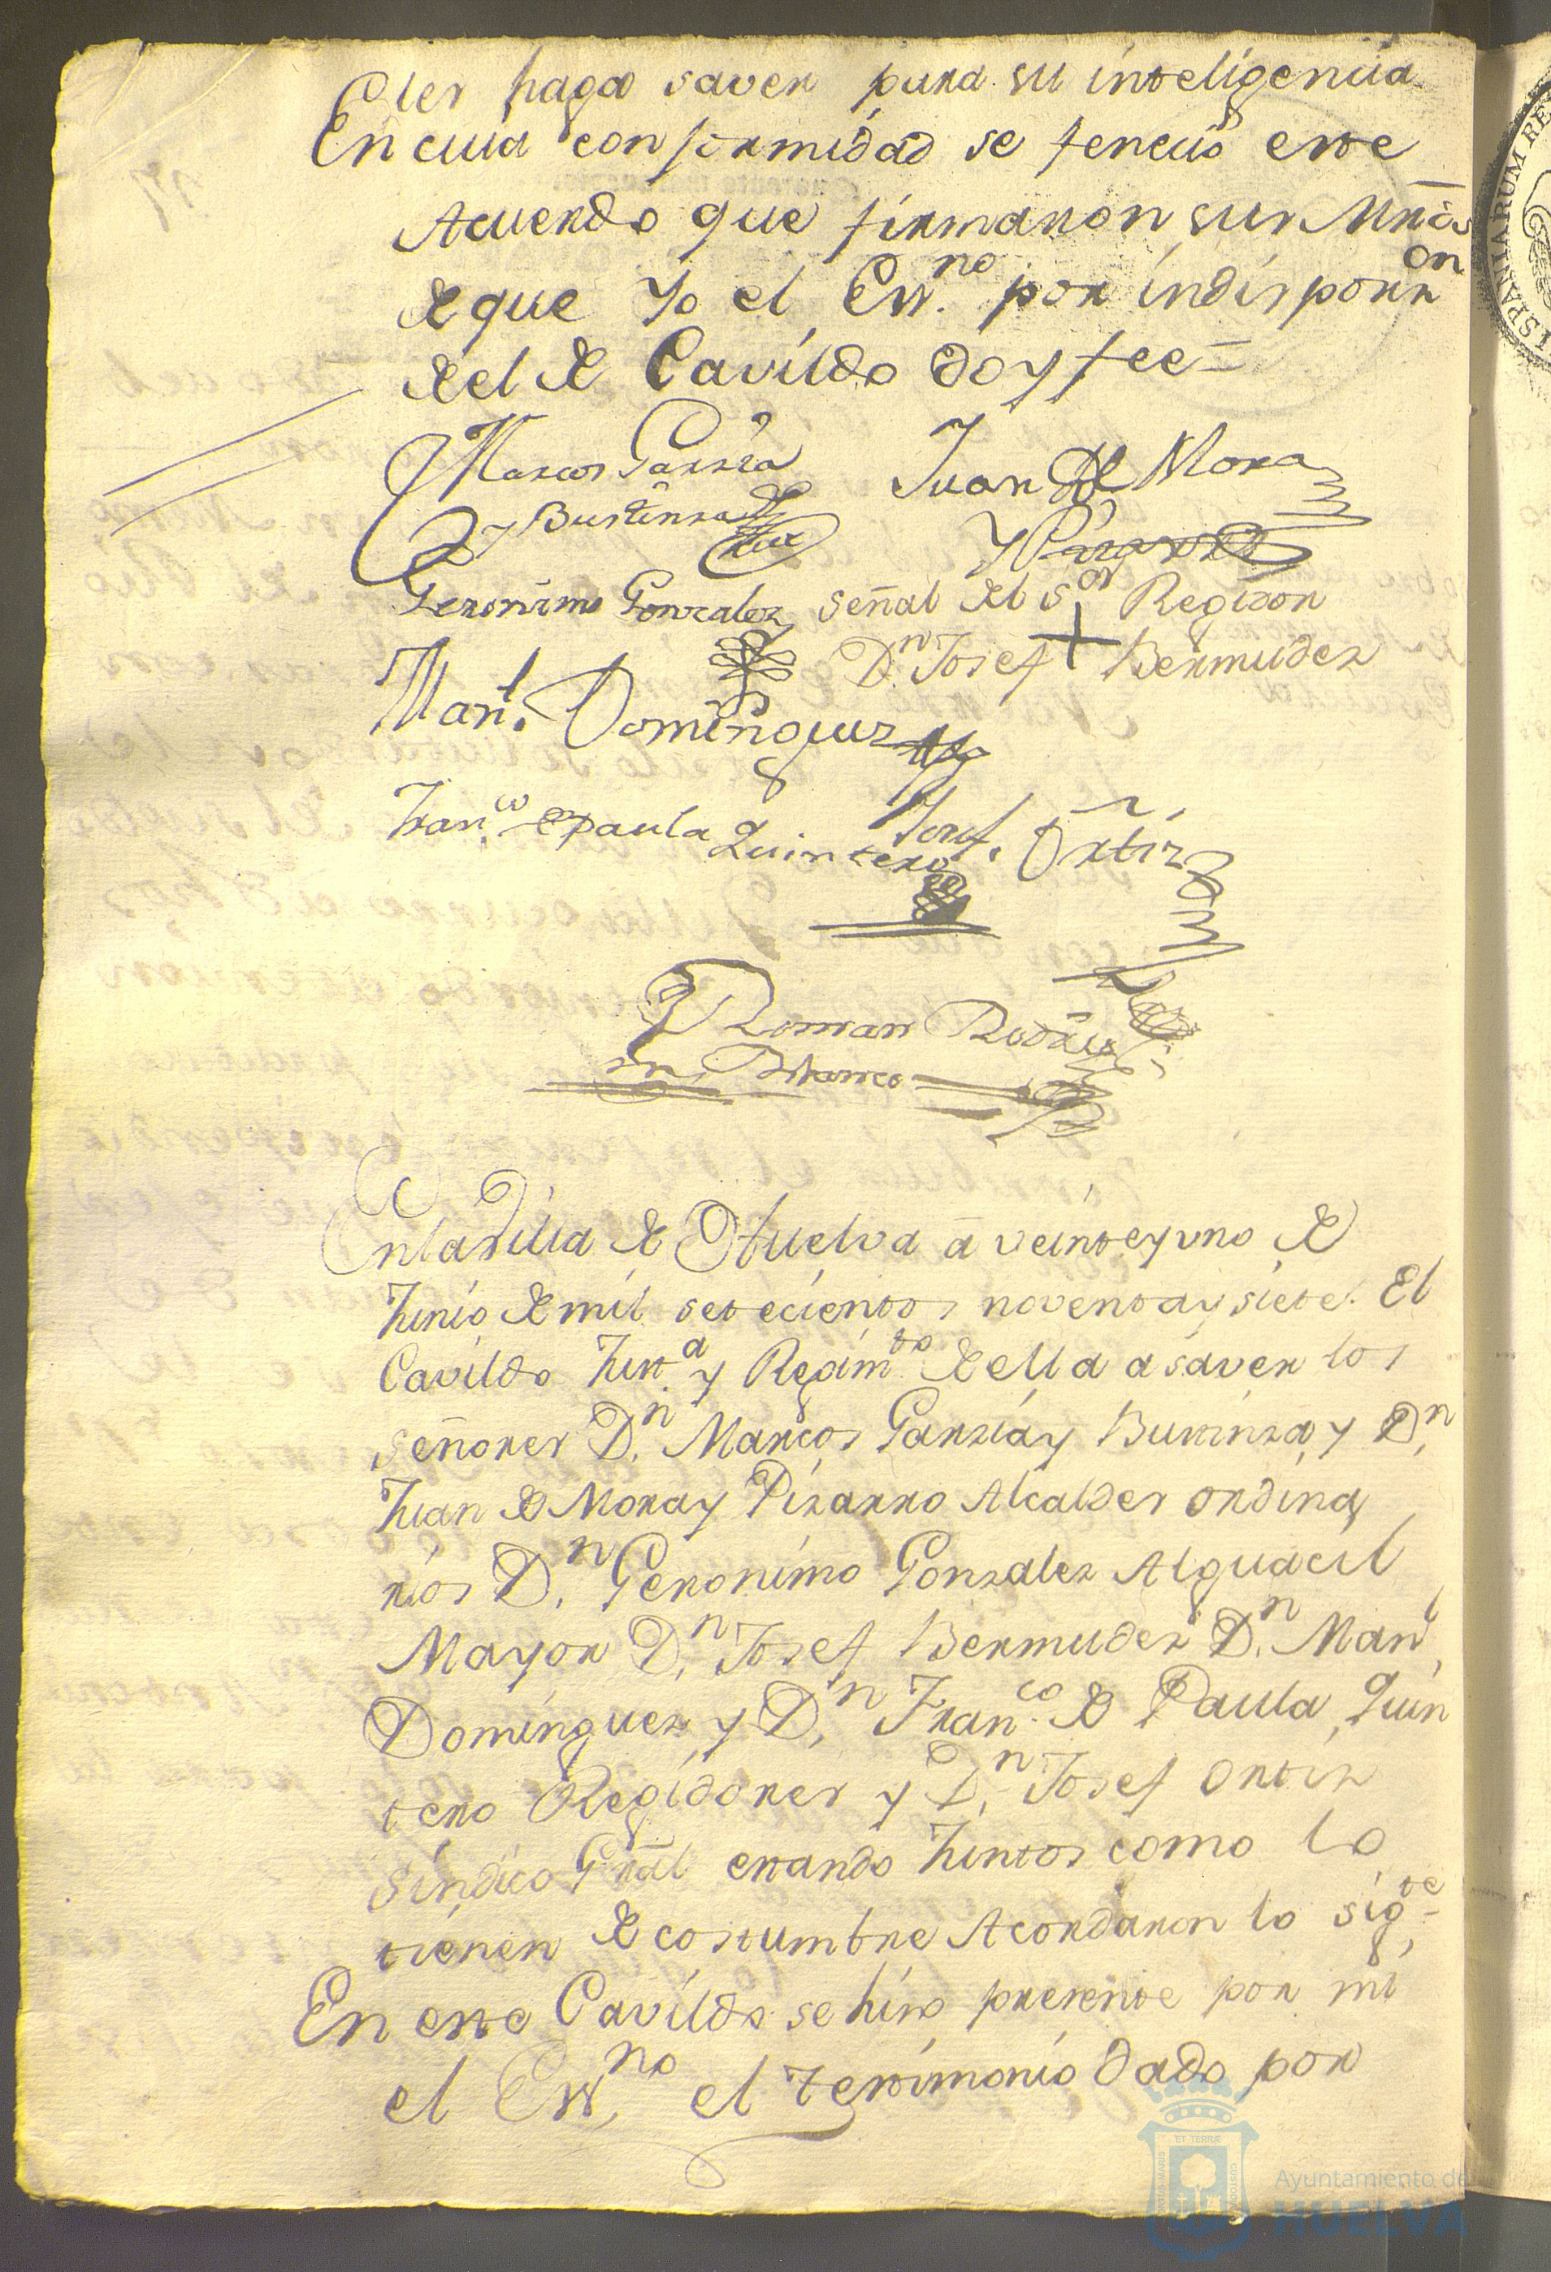 se les haga saver para su inteligencia
En cuia conformidad se fenecio este
Acuerdo que firmaron sus Mrds
de que Yo el Essno. por indisposon
del de Cavildo doy fee=
Marcos Garzia Juan de Mora
y Bustinza y Pizarro
Geronimo Gonzalez señal del Sor Regidor
Dn. Josef + Bermudez
Manl. Dominguez
Franco. de Paula Quintero Josef. Ortiz
Roman Rodrig
Blanco
En la Villa de Huelva a veinte y uno de
Junio de mil setecientos noventa y siete. El
Cavildo Justa. y Regimto. de ella a saver los
señores Dn. Marcos Garzia y Bustinza y Dn.
Juan de Mora y Pizarro Alcaldes ordina
rios Dn. Geronimo Gonzalez Alguacil
Mayor Dn. Josef Bermudez Dn. Manl.
Dominguez y Dn. Franco. de Paula Quin
tero Regidores y Dn. Josef Ortiz
Sindico Gral estando Juntos como lo
tienen de costumbre Acordaron lo sigte.
En este Cavildo se hizo presente por mi
el Essno. el testimonio dado por
Ayuntamiento de
HUELVA